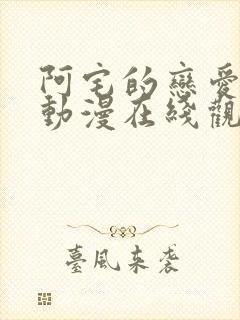 阿宅的戀愛
動漫在綫觀
臺風来袭